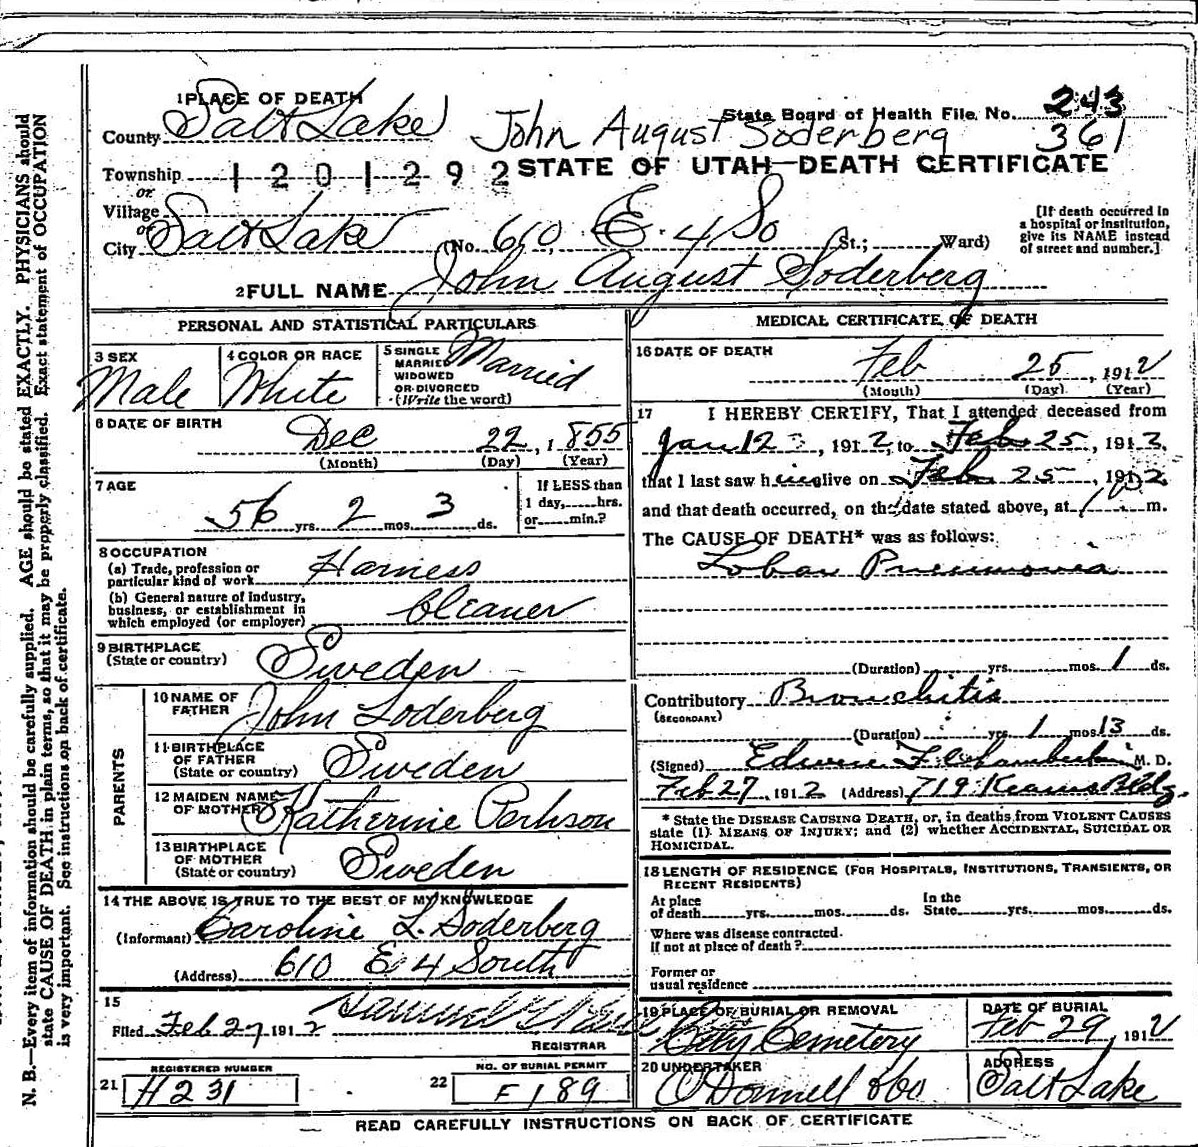 1 PLACE OF DEATH
County Salt Lake
State Board of Health File No. 243
John August Soderberg 361
Township 1201292
STATE OF UTAH—DEATH CERTIFICATE
or
Village
or
City Salt Lake (No. 610 E. 4 So St.; Ward)
[If death occurred in
a hospital or institution,
give its NAME instead
of street and number.]
2 FULL NAME John August Soderberg
PERSONAL AND STATISTICAL PARTICULARS
3 SEX
Male
4 COLOR OR RACE
White
5 SINGLE
MARRIED
WIDOWED
OR DIVORCED
(Write the word)
Married
6 DATE OF BIRTH
Dec 22, 1855
(Month) (Day) (Year)
7 AGE
56 yrs. 2 mos. 3 ds.
If LESS than
1 day, hrs.
or min.?
8 OCCUPATION
(a) Trade, profession or
particular kind of work Harness
(b) General nature of industry,
business, or establishment in
which employed (or employer) Cleaner
9 BIRTHPLACE
(State or country) Sweden
PARENTS
10 NAME OF
FATHER John Soderberg
11 BIRTHPLACE
OF FATHER
(State or country) Sweden
12 MAIDEN NAME
OF MOTHER Katherine
13 BIRTHPLACE
OF MOTHER
(State or country) Sweden
14 THE ABOVE IS TRUE TO THE BEST OF MY KNOWLEDGE
(Informant) Caroline L. Soderberg
(Address) 610 E 4 South
15
Filed Feb 27 1912 Samuel G
REGISTRAR
REGISTERED NUMBER
21 H 231
NO. OF BURIAL PERMIT
22 F 189
MEDICAL CERTIFICATE OF DEATH
16 DATE OF DEATH
Feb 25, 1912
(Month) (Day) (Year)
17 I HEREBY CERTIFY, That I attended deceased from
Jan 12, 1912, to Feb 25, 1912,
that I last saw him alive on Feb 25, 1912
and that death occurred, on the date stated above, at m.
The CAUSE OF DEATH* was as follows:
Lobar Pneumonia
(Duration) yrs. mos. 1 ds.
Contributory Bronchitis
(SECONDARY)
(Duration) yrs. 1 mos. 13 ds.
(Signed) Edwin F. Chamberlin M. D.
Feb 27, 1912 (Address) 719 Kearns Bldg.
* State the DISEASE CAUSING DEATH, or, in deaths from VIOLENT CAUSES
state (1) MEANS OF INJURY; and (2) whether ACCIDENTAL, SUICIDAL OR
HOMICIDAL.
18 LENGTH OF RESIDENCE (FOR HOSPITALS, INSTITUTIONS, TRANSIENTS, OR
RECENT RESIDENTS)
At place
of death yrs. mos. ds.
In the
State yrs. mos. ds.
Where was disease contracted.
If not at place of death?
Former or
usual residence
19 PLACE OF BURIAL OR REMOVAL
City Cemetery
DATE OF BURIAL
Feb 29, 1912
20 UNDERTAKER
O'Donnell &Co
ADDRESS
Salt Lake
READ CAREFULLY INSTRUCTIONS ON BACK OF CERTIFICATE
N. B.—Every item of information should be carefully supplied. AGE should be stated EXACTLY. PHYSICIANS should
state CAUSE OF DEATH in plain terms, so that it may be properly classified. Exact statement of OCCUPATION
is very important. See instructions on back of certificate.